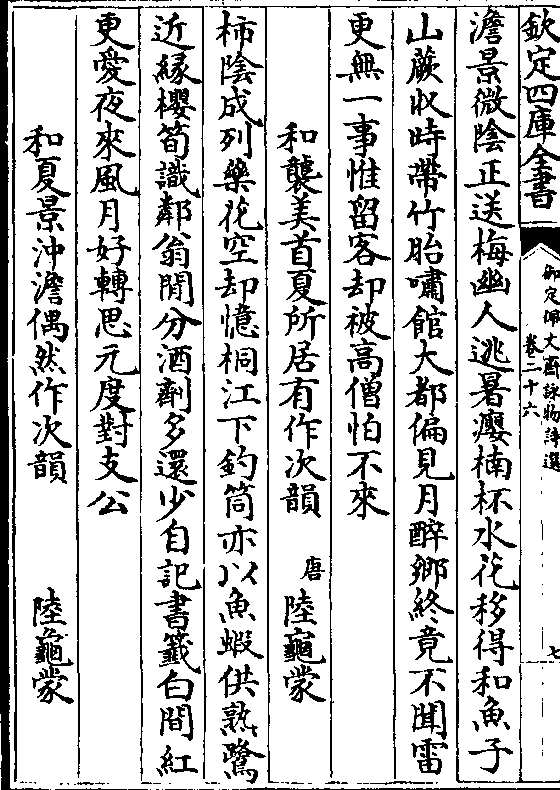 欽定四庫全書
御定佩文齋詠物詩選
卷二十六
七
澹景微陰正送梅幽人逃暑癭楠杯水花移得和魚子
山蕨收時帶竹胎嘯館大都偏見月醉鄉終竟不聞雷
更無一事惟留客却被高僧怕不來
和襲美首夏所居有作次韻 唐 陸龜蒙
柿陰成列藥花空却憶桐江下釣筒亦以魚蝦供熟鷺
近緣櫻筍識鄰翁閒分酒劑多還少自記書籤白間紅
更愛夜來風月好轉思元度對支公
和夏景沖澹偶然作次韻 陸龜蒙